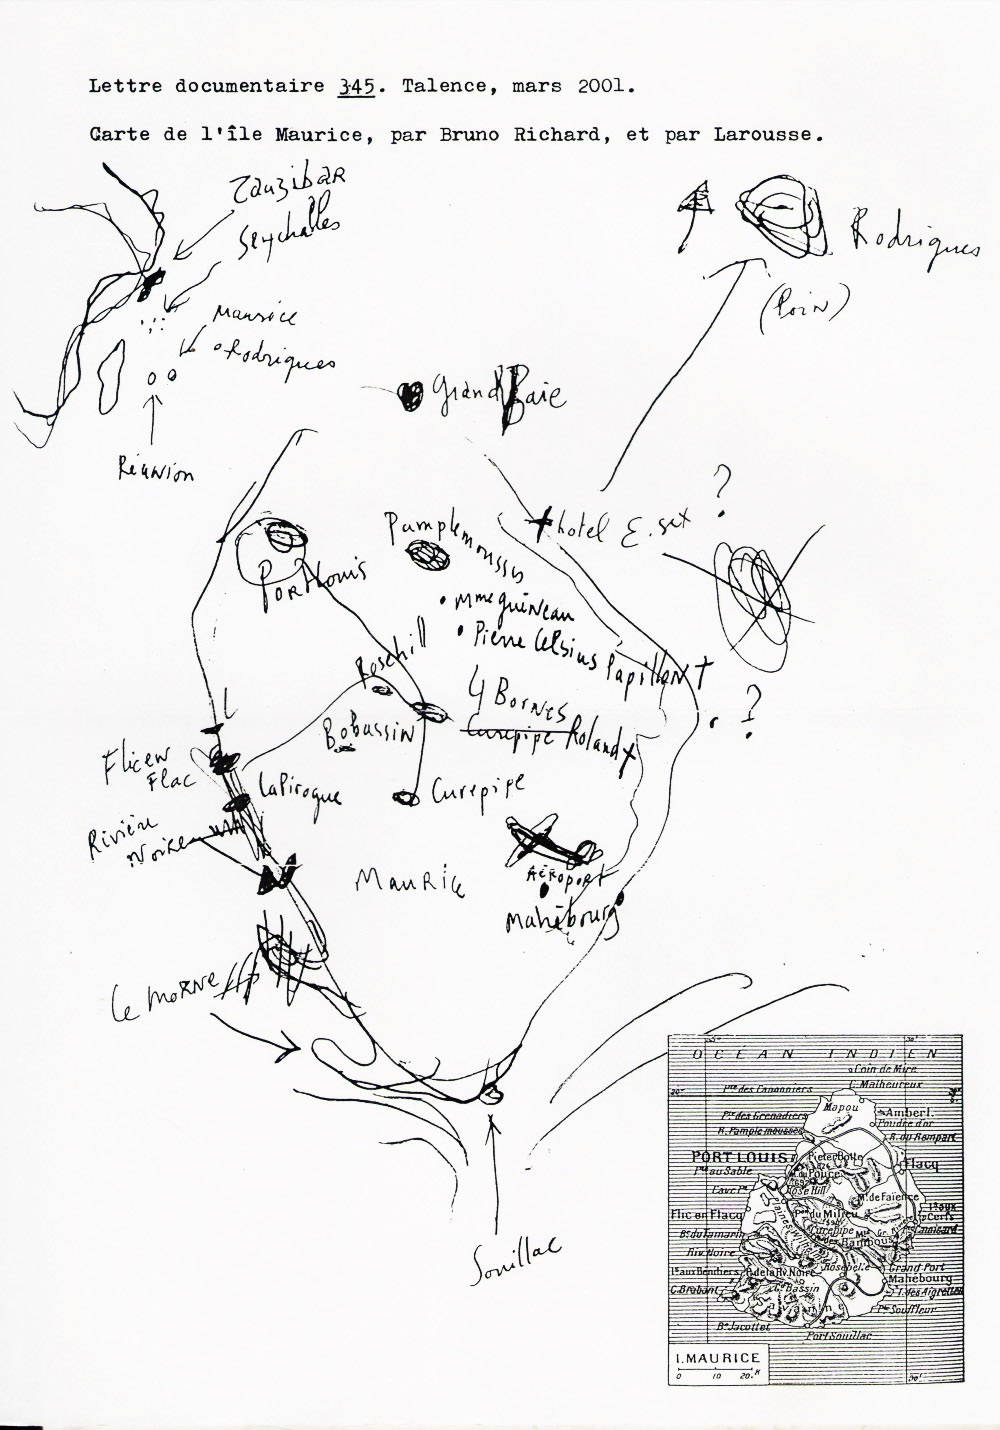 Lettre documentaire 345. Talence, mars 2001.
Carte de l'île Maurice, par Bruno Richard, et par Larousse.
Zanzibar
Seychelles
Maurice
Rodrigues
Réunion
Rodrigues
(loin)
Grand Baie
?
hotel E. sex
Pamplemousses
Port Louis
• Mme guineau
• Pierre Celsius
Papillon
Rosehill
4 Bornes
Curepipe Roland
?
Bobassin
Flicen
Flac
LaPirogue
Curepipe
Rivière
Noire
Maurice
AÉROPORT
Mahébourg
le morne
Souillac
OCÉAN INDIEN
Coin de Mire
Pte des Canonniers
C. Malheureux
Mapou
Amberl.
Pte des Grenadiers
Poudre d'or
R. Pamplemousses
R. du Rempart
PORT LOUIS
PieterBotte
Flacq
Pte au Sable
Le Pouce
Rose Hill
Mt de Faïence
Flic en Flacq
Pton du Milieu
Curepipe
Bambous
B. du Tamarin
Riv. Noire
Rosebelle
Grand Port
Mahébourg
I. des Aigrettes
C. Brabant
Gd Bassin
Savanne
Pte Souffleur
Be Jacottet
Port Souillac
I. MAURICE
0 10 20 K